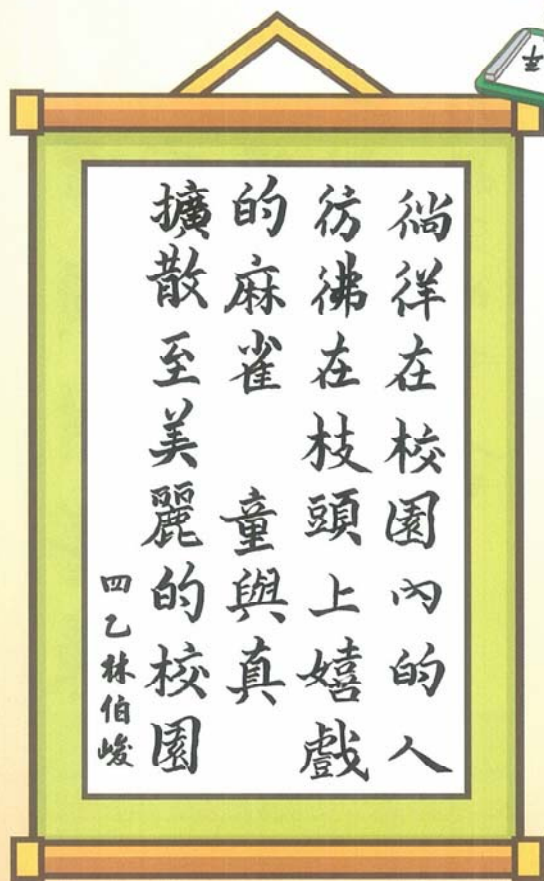 徜徉在校園內的人
彷彿在枝頭上嬉戲
的麻雀　童與真
擴散至美麗的校園
四乙林伯峻